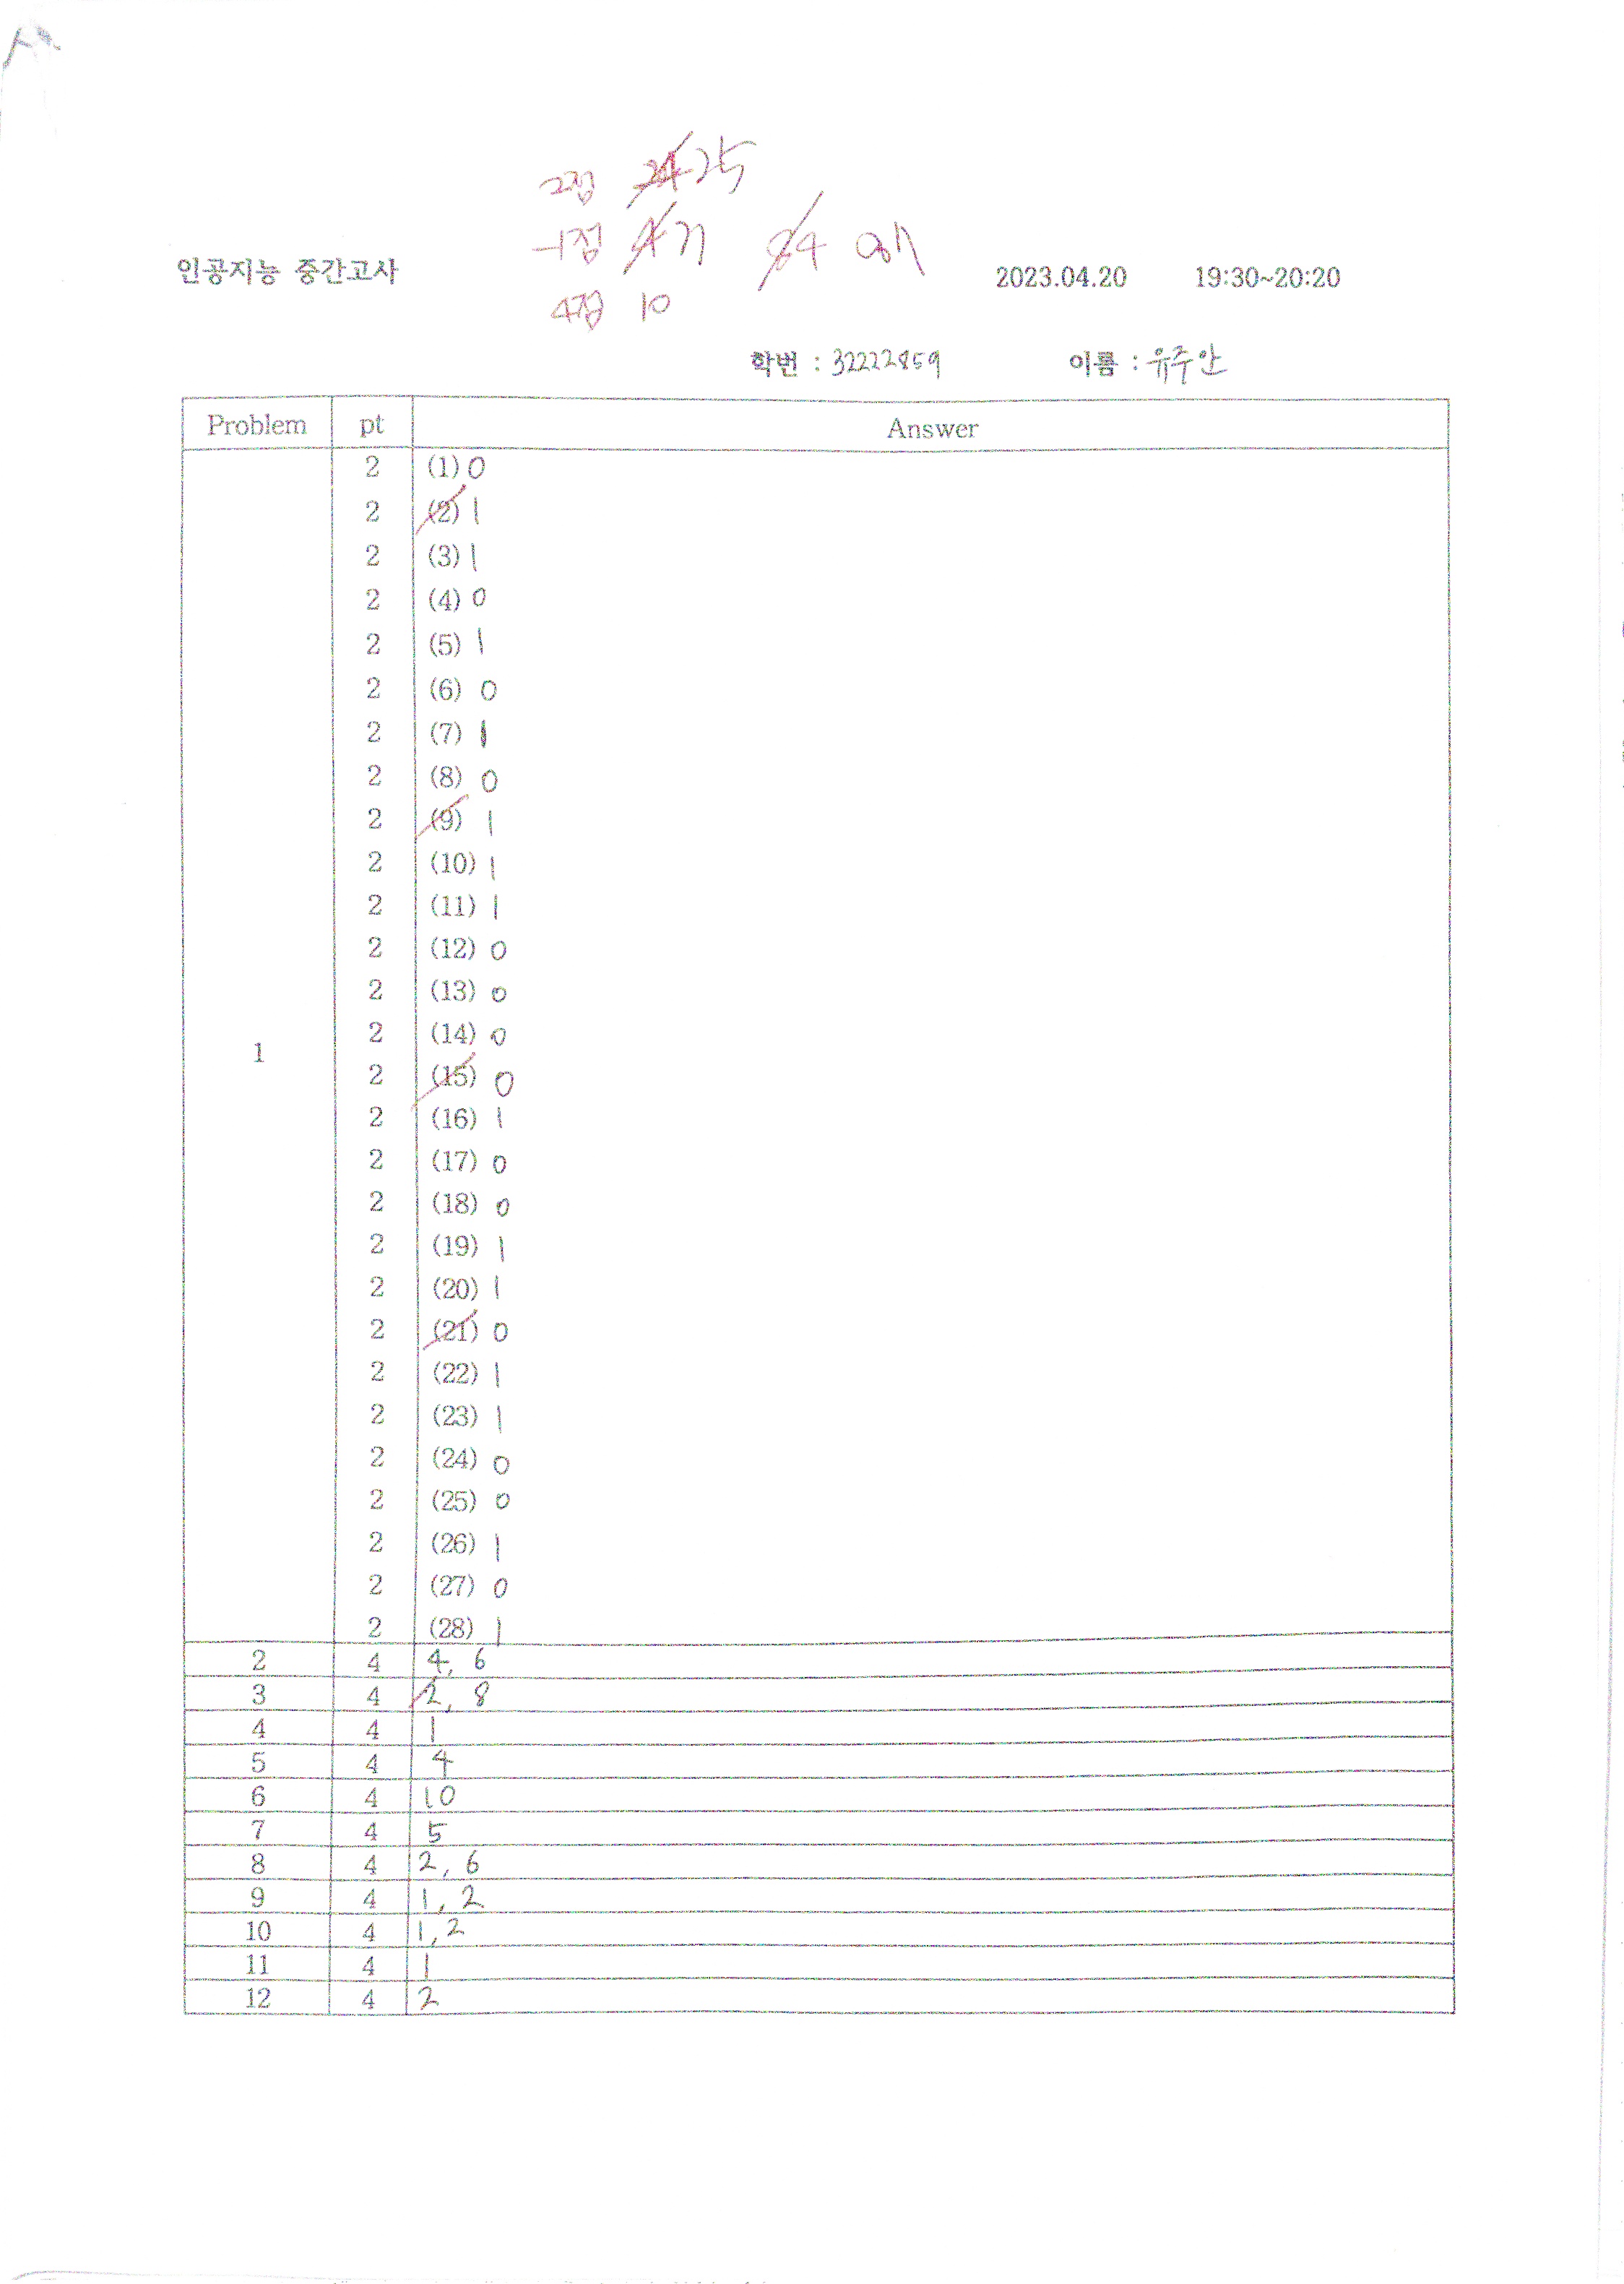 2점 24 25
-1점 4 기
84
4점 10
인공지능 중간고사 2023.04.20 19:30~20:20
학번 : 32222859 이름 : 유주안
Problem pt Answer
1
2 (1) 0
2 (2) 1
2 (3) 1
2 (4) 0
2 (5) 1
2 (6) 0
2 (7) 1
2 (8) 0
2 (9) 1
2 (10) 1
2 (11) 1
2 (12) 0
2 (13) 0
2 (14) 0
2 (15) 0
2 (16) 1
2 (17) 0
2 (18) 0
2 (19) 1
2 (20) 1
2 (21) 0
2 (22) 1
2 (23) 1
2 (24) 0
2 (25) 0
2 (26) 1
2 (27) 0
2 (28) 1
2 4 4, 6
3 4 2, 8
4 4 1
5 4 4
6 4 10
7 4 5
8 4 2, 6
9 4 1, 2
10 4 1, 2
11 4 1
12 4 2